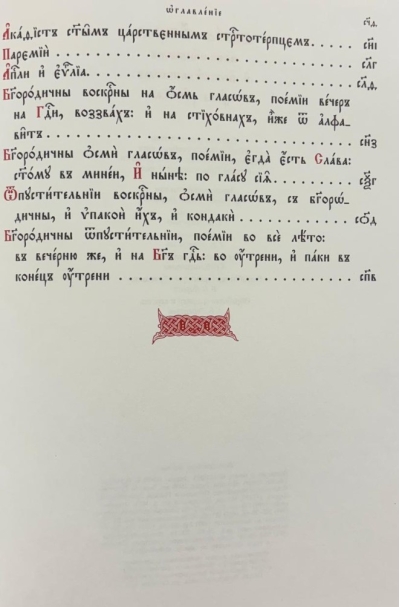 Ѡ҆главле́нїе
А҆ка́ѳїстъ ст҃ы̑мъ ца́рственнымъ стрⷭ҇тоте́рпцемъ. . . . . . сн҃і
Паремі́и . . . . . . . . . . . . . . . . . . . . сл҃г
А҆пⷭ҇ли и҆ є҆ѵⷢ҇лїа. . . . . . . . . . . . . . . . . . . сл҃д.
Бг҃оро́дичны воскрⷭ҇ны на ѻ҆́смь гласѡ́въ, поє́мїи ве́черъ
на Гдⷭ҇и, воззва́хъ: и҆ на стїхо́внахъ, и҆̀же ѿ а҆лфа-
ви́тъ . . . . . . . . . . . . . . . . . . . . . .
Бг҃оро́дичны ѻ҆смѝ гласѡ́въ, поє́мїи, є҆гда̀ є҆́сть Сла́ва:
ст҃о́му въ мине́и, И҆ ны́нѣ: по гла́су сїѧ̑ . . . . . .
Ѿпусти́тельнїи воскрⷭ҇ны, ѻ҆смѝ гласѡ́въ, съ бг҃оро́-
дичны, и҆ ѵ҆пакоѝ и҆́хъ, и҆ кондакѝ . . . . . . . . со҃д
Бг҃оро́дичны ѿпусти́тельнїи, поє́мїи во всѐ лѣ́то:
въ вече́рню же, и҆ на Бг҃ъ гдⷭ҇ь: во ᲂу҆́трени, и҆ па́ки въ
коне́цъ ᲂу҆́трени . . . . . . . . . . . . . . . . . сп҃в